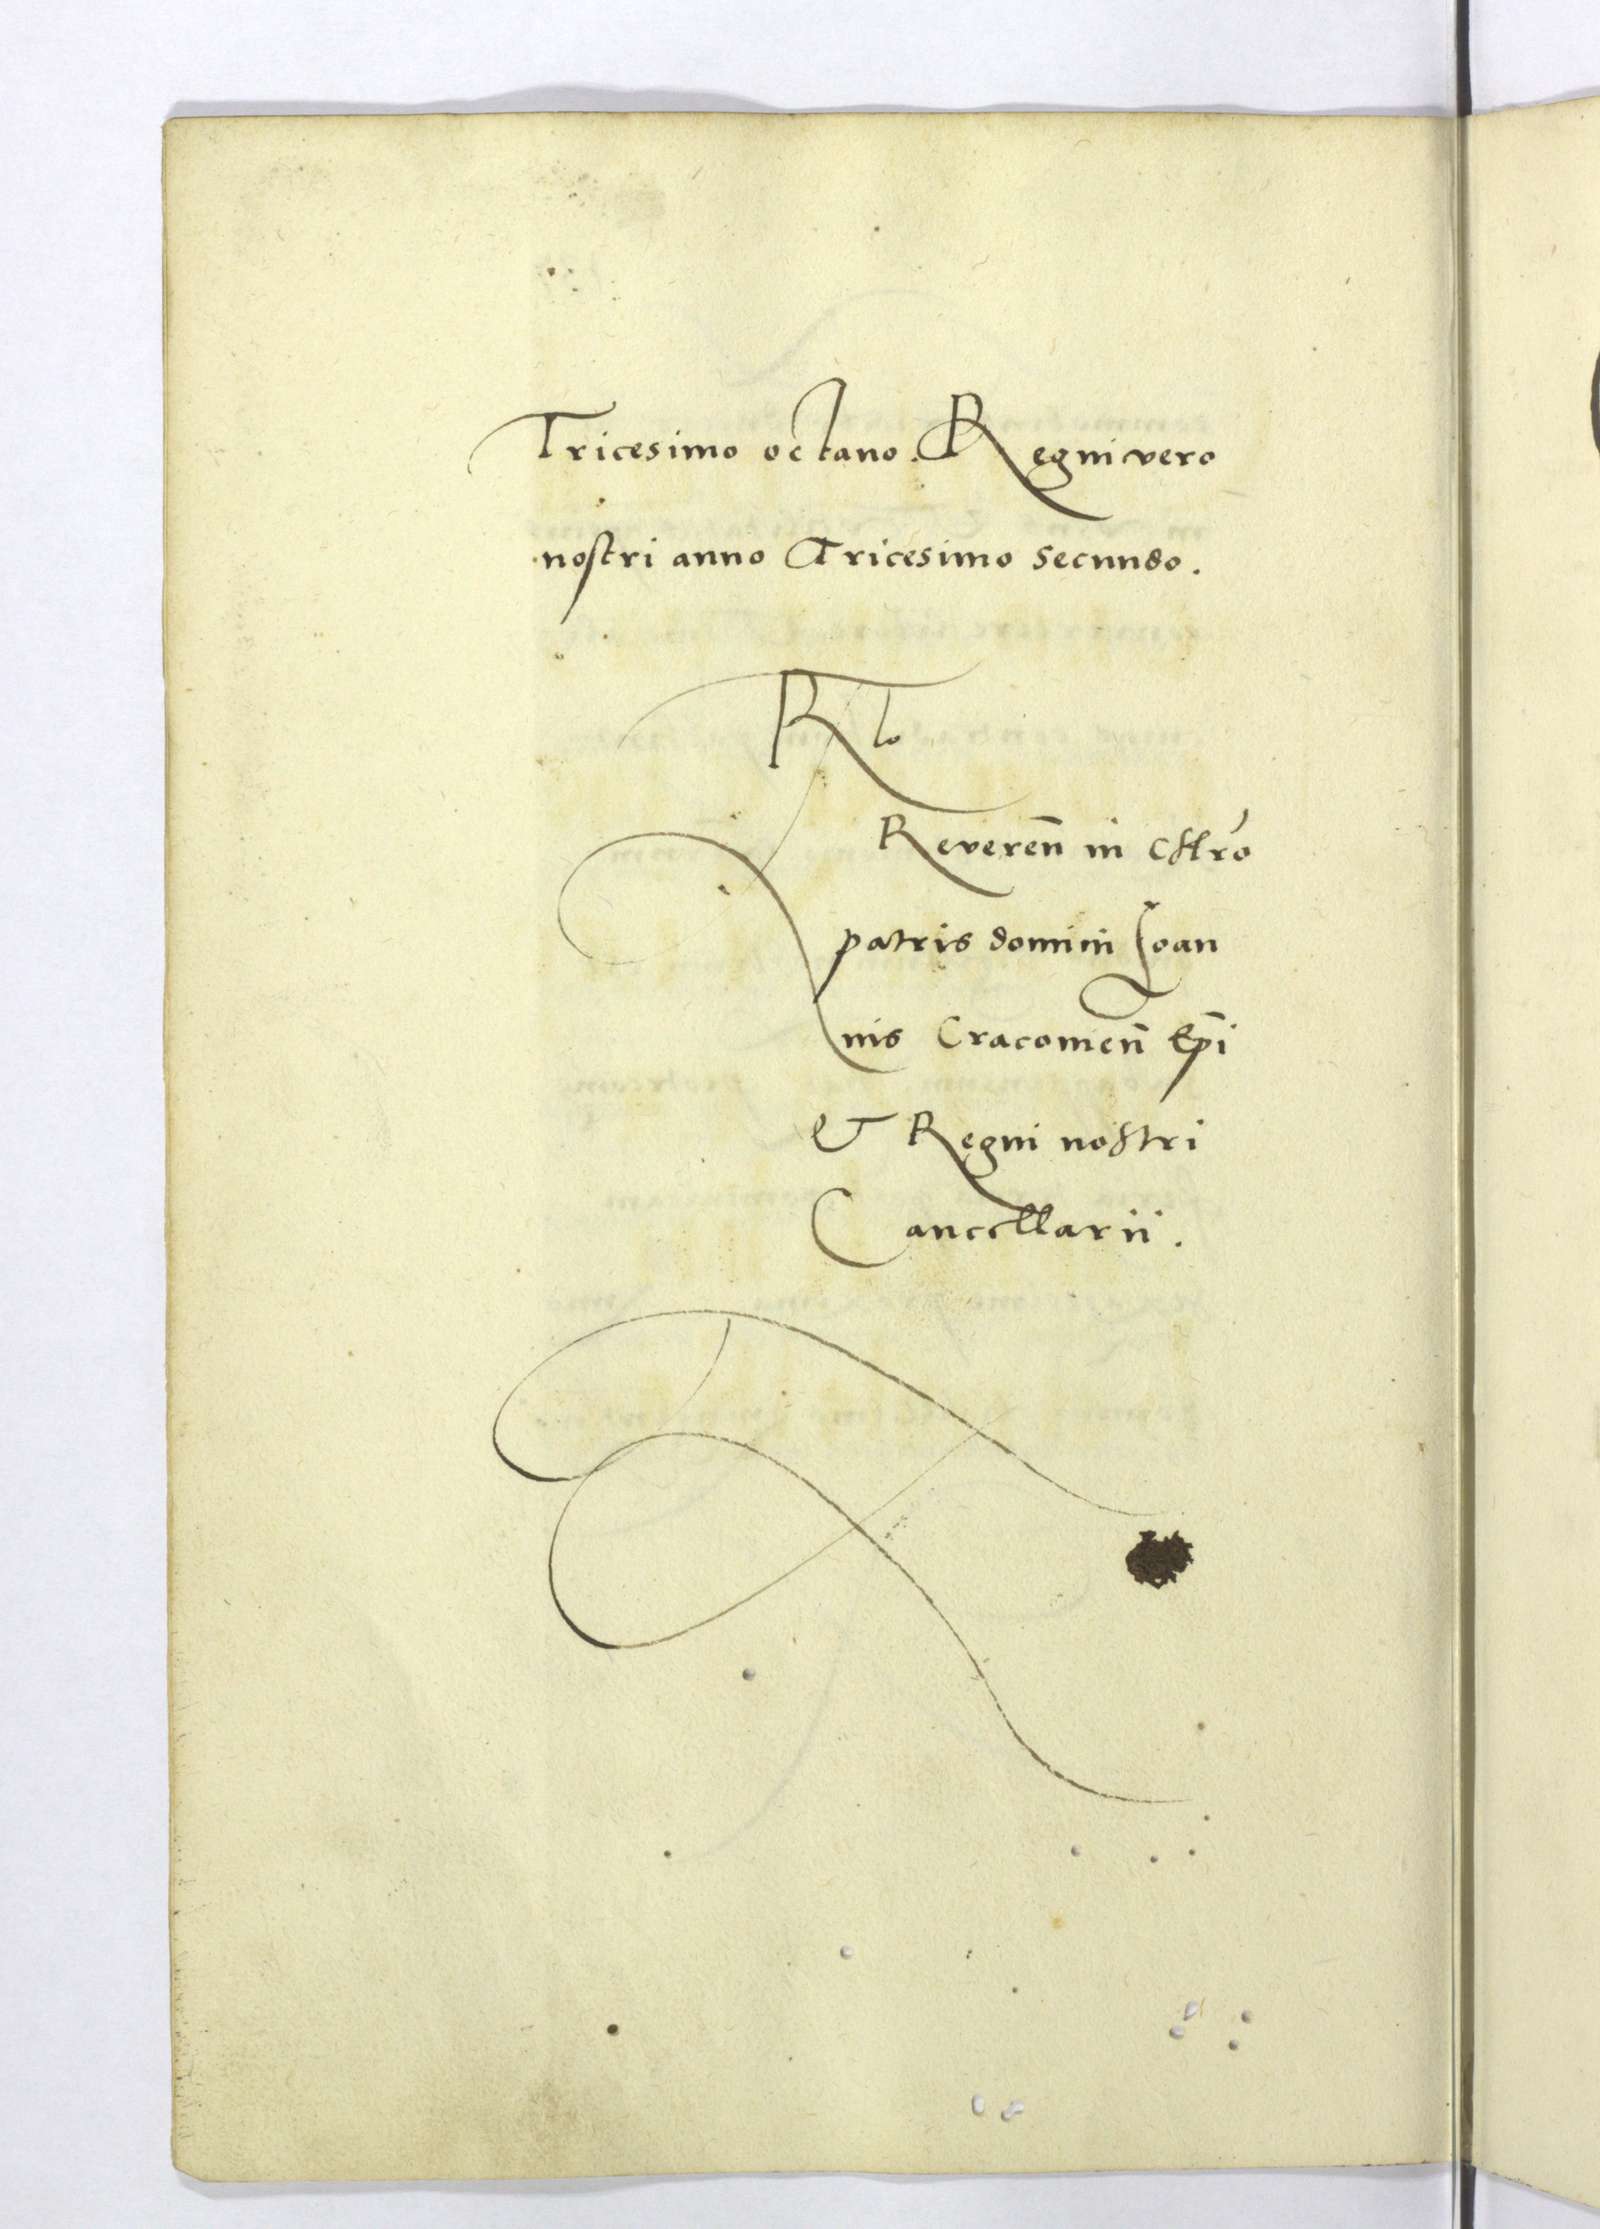 Tricesimo octavo. Regni vero
nostri anno Tricesimo secundo.
Rto
Reveren̄ in Chr̄o
patris domini Joan
nis Cracovien̄ Ep̄i
& Regni nostri
Cancellarii.